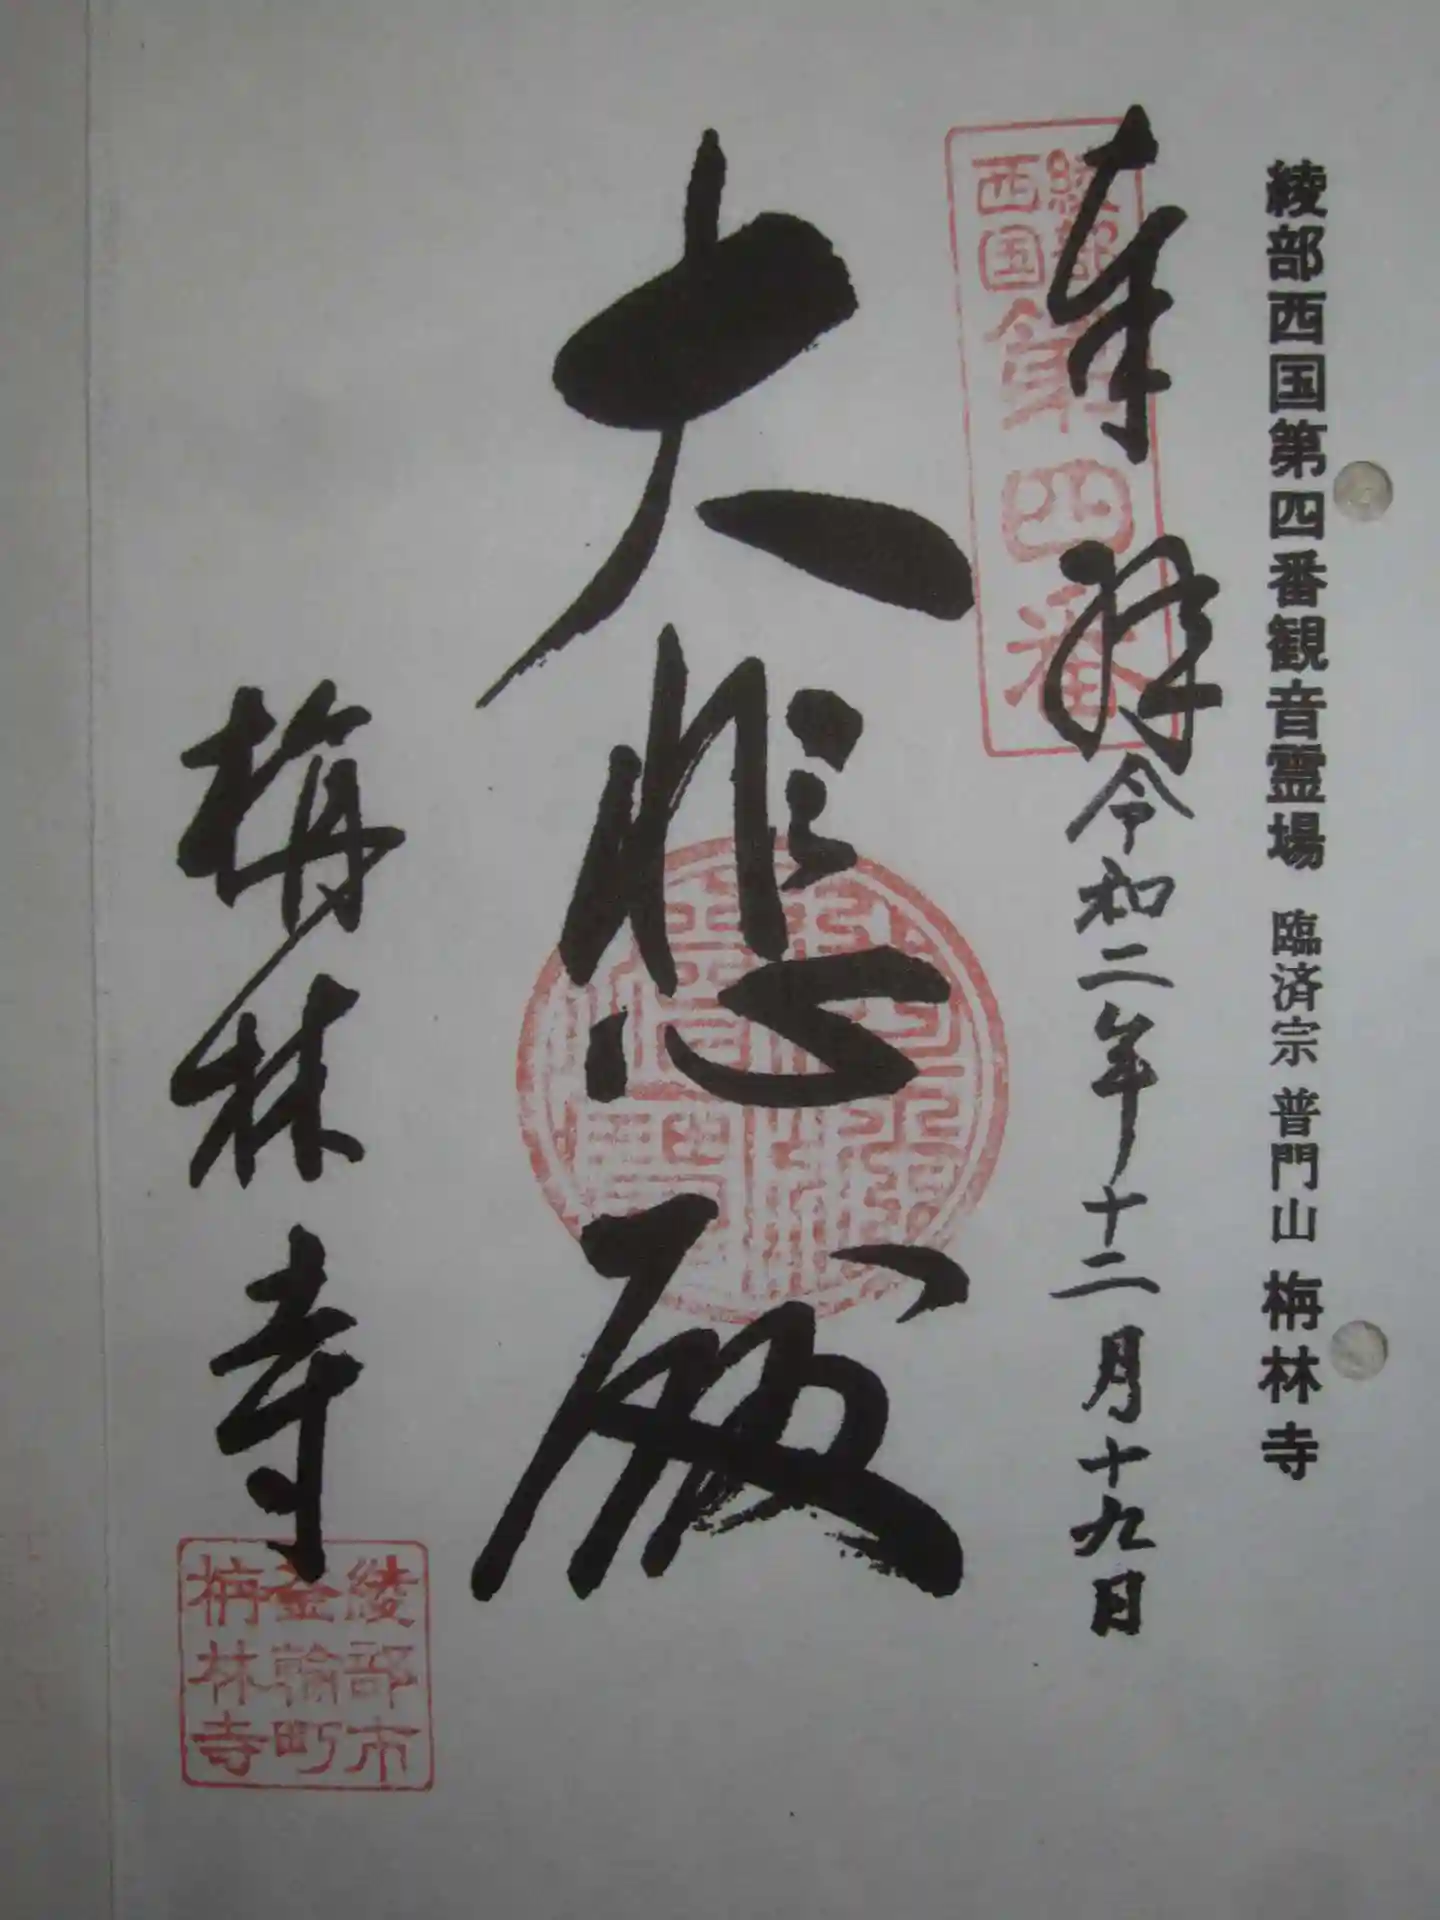 綾部西国第四番観音霊場 臨済宗 普門山 栴林寺
奉拝 令和二年十二月十九日
綾部
西国
第四番
大悲殿
栴林寺
綾部市
釜輪町
栴林寺